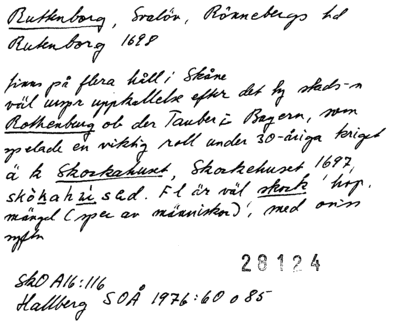 Ruttenborg, Svalöv, Rönnebergs hd
Rutenborg 1698
finns på flera håll i Skåne
väl urspr uppkallelse efter det ty stads-n
Rothenburg ob der Tauber i Bayern, som
spelade en viktig roll under 30-åriga kriget
ä k Skorkahuset, Skorkehuset 1697,
skòkahúsəd. Fl är väl skork 'hop,
mängd (spec av människor)', med oviss
syftn
SkO A16:116
Hallberg SOÅ 1976:60 o 85
28124